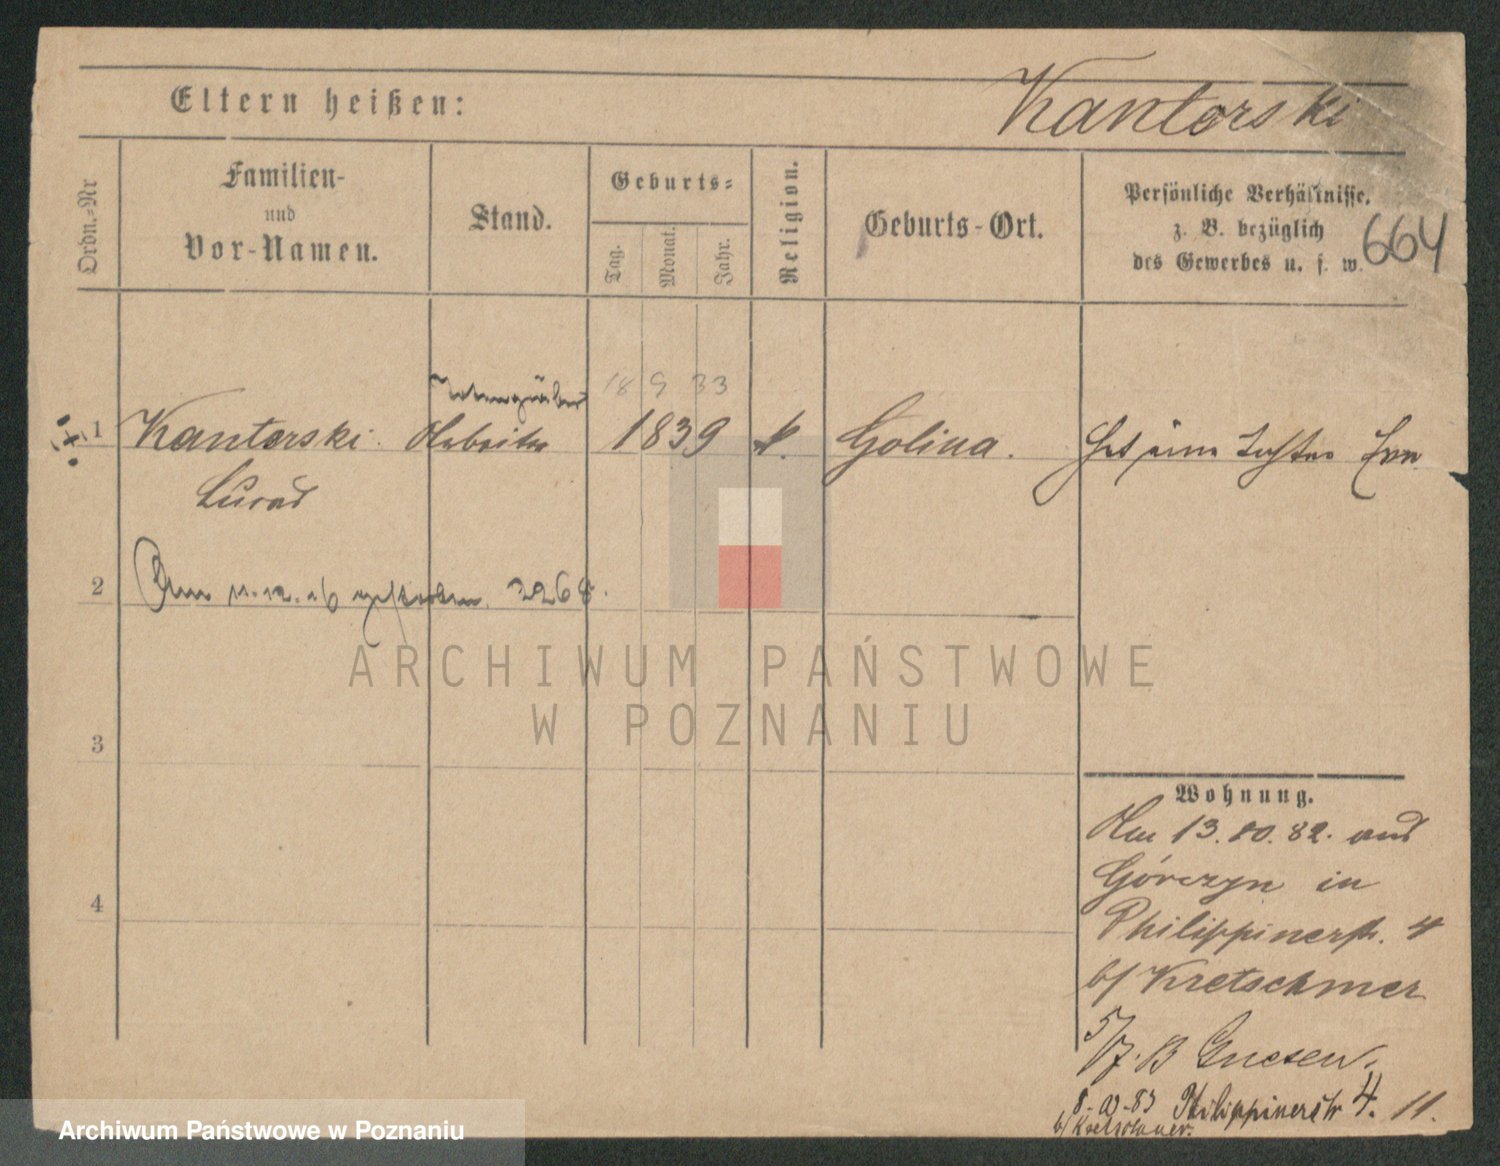 Kantorski
Eltern heißen:
Ordn.=Nr
Familien-
und
Vor-Namen.
Stand.
Geburts=
Tag.
Monat.
Jahr.
Religion.
Geburts-Ort.
Persönliche Verhältnisse,
z. B. bezüglich
des Gewerbes u. s. w.
664
18 9 33
1 Kantorski. Arbeiter 1839 k. Golina. Hat eine Tochter
2 Am 11.12.16 gestorben. 3268.
3
4
Wohnung.
Am 13.10.82. aus
Górczyn in
Philippinerstr. 4
b/ Kretschmer
5/7. B Gnesen.
Philippinerstr 4. 11.
b/ Kretschmer.
ARCHIWUM PAŃSTWOWE
W POZNANIU
Archiwum Państwowe w Poznaniu